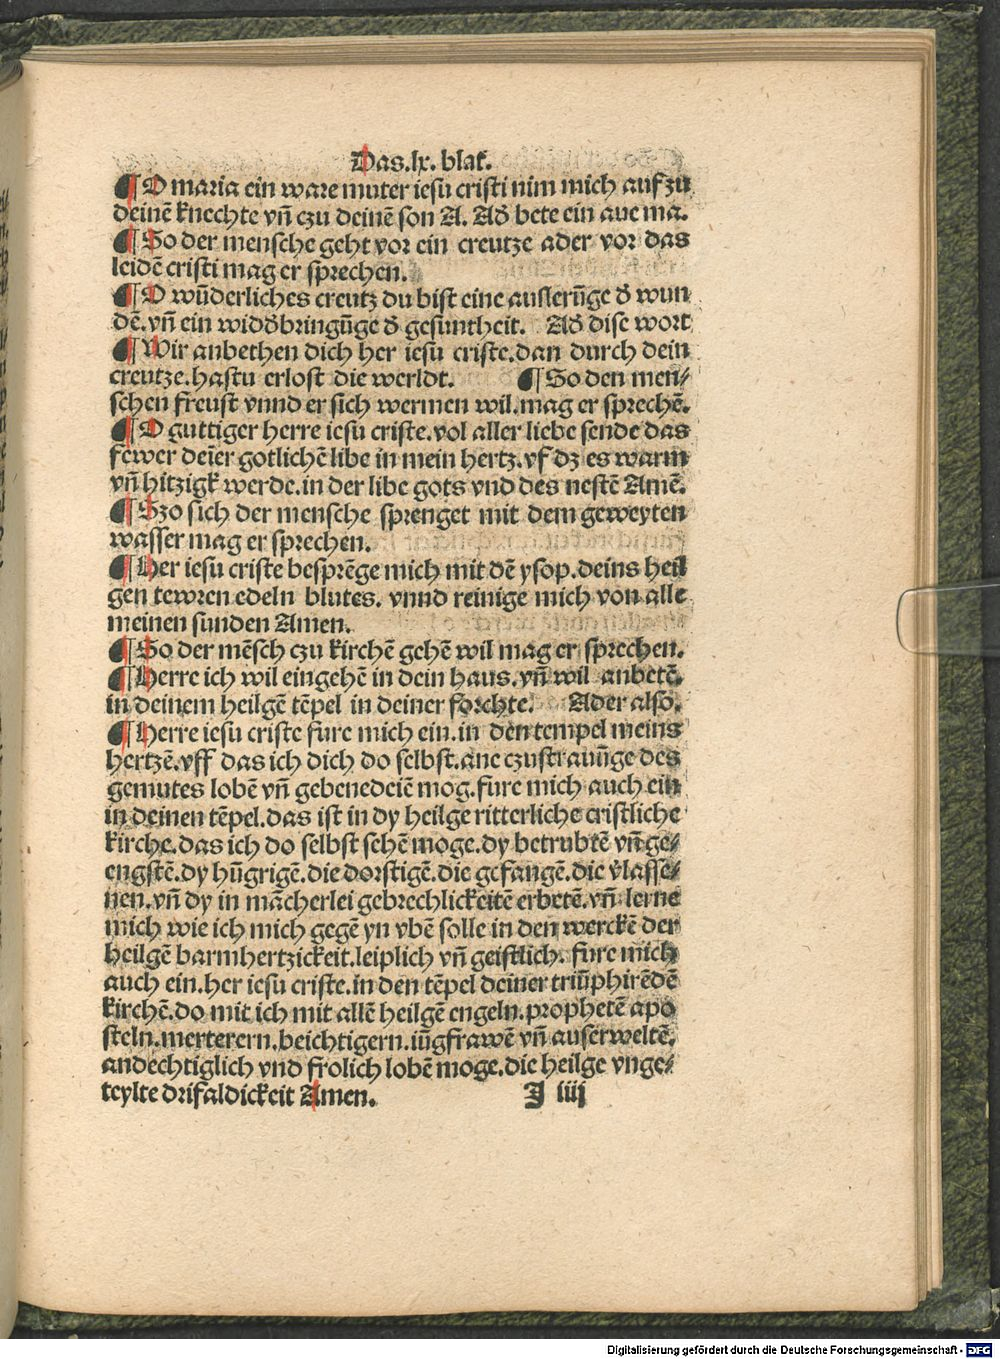 Das.lx.blat.
¶ O maria ein ware muter iesu cristi nim mich auf zu
deinē knechte vñ czu deinē son A. Ad̕ bete ein aue ma.
¶ So der mensche geht vor ein creutze ader vor das
leidē cristi mag er sprechen.
¶ O wūderliches creutz du bist eine auslerūge d̕ wun
dē.vñ ein wid̕bringūge d̕ gesuntheit. Ad̕ dise wort
¶ Wir anbethen dich her iesu criste.dan durch dein
creutze.hastu erlost die werldt. ¶ So den men⸗
schen freust vnnd er sich wermen wil.mag er sprechē.
¶ O guttiger herre iesu criste.vol aller liebe sende das
fewer deīer gotlichē libe in mein hertz.vf dz es warm
vñ hitzigk werde.in der libe gots vnd des nestē Amē.
¶ Szo sich der mensche sprenget mit dem geweyten
wasser mag er sprechen.
¶ Her iesu criste besprēge mich mit dē ysop.deins heil
gen tewren edeln blutes. vnnd reinige mich von alle
meinen sunden Amen.
¶ So der mēsch czu kirchē gehē wil mag er sprechen.
¶ Herre ich wil eingehē in dein haus.vñ wil anbetē.
in deinem heilgē tēpel in deiner forchte. Ader also.
¶ Herre iesu criste fure mich ein.in den tempel meins
hertzē.vff das ich dich do selbst.ane czustrauūge des
gemutes lobē vñ gebenedeiē mog.fure mich auch ein
in deinen tēpel.das ist in dy heilge ritterliche cristliche
kirche.das ich do selbst sehē moge.dy betrubtē vñ ge⸗
engstē.dy hūgrigē.die dorstigē.die gefangē.die v̕lasse⸗
nen.vñ dy in mācherlei gebrechlickeitē erbetē.vñ lerne
mich wie ich mich gegē yn vbē solle in den werckē der
heilgē barmhertzickeit.leiplich vñ geistlich. fure mich
auch ein.her iesu criste.in den tēpel deiner triūphirēdē
kirchē.do mit ich mit allē heilgē engeln.prophetē apo
steln.merterern.beichtigern.iūgfrawē vñ auserweltē.
andechtiglich vnd frolich lobē moge.die heilge vnge⸗
teylte drifaldickeit Amen. I iiij
Digitalisierung gefördert durch die Deutsche Forschungsgemeinschaft - DFG